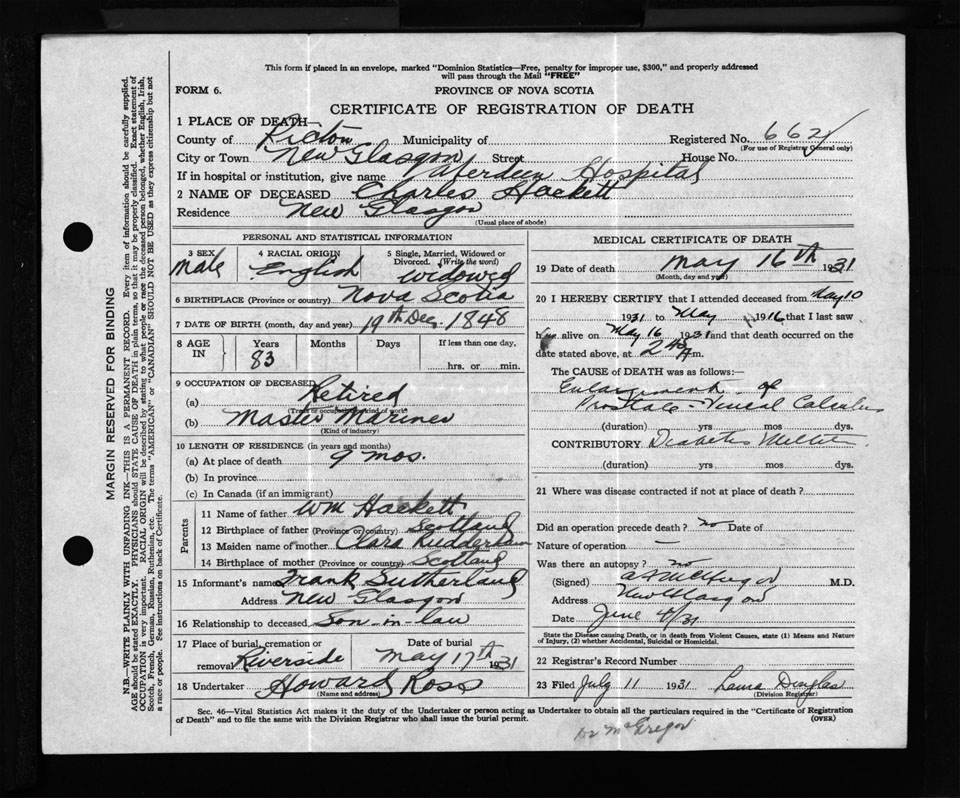 This form if placed in an envelope, marked "Dominion Statistics—Free, penalty for improper use, $300," and properly addressed
will pass through the Mail "FREE"
FORM 6.
PROVINCE OF NOVA SCOTIA
CERTIFICATE OF REGISTRATION OF DEATH
1 PLACE OF DEATH
County of Pictou Municipality of Registered No. 662
(For use of Registrar General only)
City or Town New Glasgow Street House No.
If in hospital or institution, give name Aberdeen Hospital
2 NAME OF DECEASED Charles Hackett
Residence New Glasgow
(Usual place of abode)
PERSONAL AND STATISTICAL INFORMATION
3 SEX 4 RACIAL ORIGIN 5 Single, Married, Widowed or
Divorced. (Write the word)
Male English Widowed
6 BIRTHPLACE (Province or country) Nova Scotia
7 DATE OF BIRTH (month, day and year) 19th Dec. 1848
8 AGE IN Years Months Days If less than one day,
83 hrs. or min.
9 OCCUPATION OF DECEASED
(a) Retired
(Trade or occupation, kind of work)
(b) Master Mariner
(Kind of industry)
10 LENGTH OF RESIDENCE (in years and months)
(a) At place of death 9 mos.
(b) In province
(c) In Canada (if an immigrant)
Parents
11 Name of father Wm Hackett
12 Birthplace of father (Province or country) Scotland
13 Maiden name of mother Clara
14 Birthplace of mother (Province or country) Scotland
15 Informant's name Frank Sutherland
Address New Glasgow
16 Relationship to deceased Son-in-law
17 Place of burial, cremation or Date of burial
removal Riverside May 17th 1931
18 Undertaker Howard Ross
(Name and address)
MEDICAL CERTIFICATE OF DEATH
19 Date of death May 16th 1931
(Month, day and year)
20 I HEREBY CERTIFY that I attended deceased from May 10
1931 to May 16 that I last saw
h alive on May 16 1931 and that death occurred on the
date stated above, at 2 m.
The CAUSE of DEATH was as follows:
Enlargement of
Prostate - Calculus
(duration) yrs mos dys.
CONTRIBUTORY Diabetes
(duration) yrs mos dys.
21 Where was disease contracted if not at place of death?
Did an operation precede death? no Date of
Nature of operation —
Was there an autopsy? no
(Signed) M.D.
Address New Glasgow
Date June 4/31
State the Disease causing Death, or in death from Violent Causes, state (1) Means and Nature
of Injury, (2) whether Accidental, Suicidal or Homicidal.
22 Registrar's Record Number
23 Filed July 11 1931 Laura Douglas
(Division Registrar)
Sec. 46—Vital Statistics Act makes it the duty of the Undertaker or person acting as Undertaker to obtain all the particulars required in the "Certificate of Registration
of Death" and to file the same with the Division Registrar who shall issue the burial permit. (OVER)
Dr McGregor
MARGIN RESERVED FOR BINDING
N.B.—WRITE PLAINLY WITH UNFADING INK—THIS IS A PERMANENT RECORD. Every item of information should be carefully supplied.
AGE should be stated EXACTLY. PHYSICIANS should state CAUSE OF DEATH in plain terms, so that it may be properly classified. Exact statement of
OCCUPATION is very important. RACIAL ORIGIN will be described by stating to what people or race the deceased person belonged, whether English, Irish,
Scotch, French, German, Russian, Ruthenian, etc. The terms "AMERICAN" or "CANADIAN" SHOULD NOT BE USED as they express citizenship but not
a race or people. See instructions on back of Certificate.